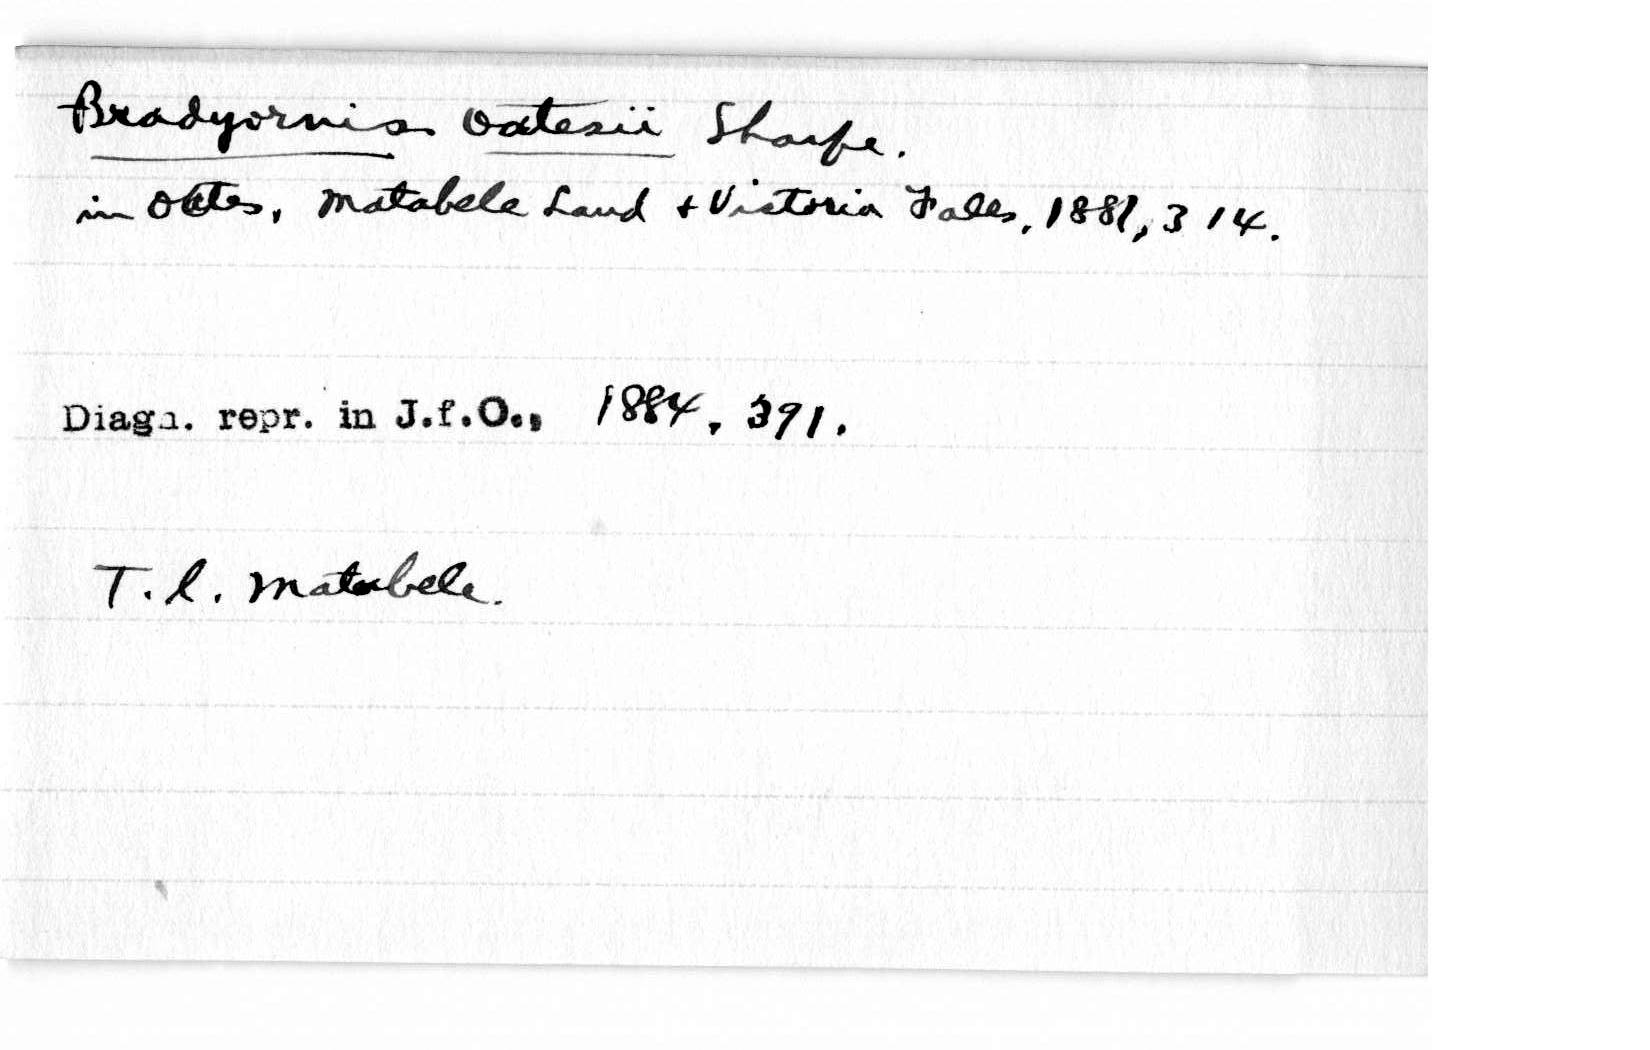 Bradyornis oatesii Sharpe.
in Oates, Matabele Land + Victoria Falls, 1881, 314.
Diagn. repr. in J.f.O., 1884, 391.
T. l. Matabele.